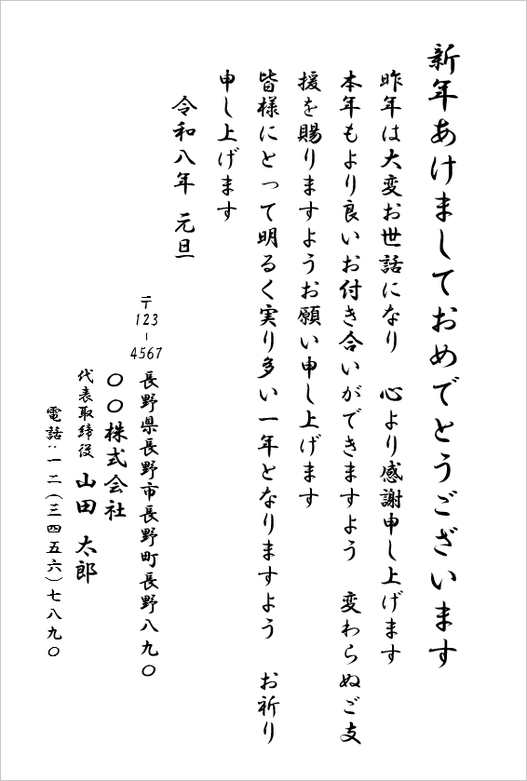 新年あけましておめでとうございます
昨年は大変お世話になり　心より感謝申し上げます
本年もより良いお付き合いができますよう　変わらぬご支
援を賜りますようお願い申し上げます
皆様にとって明るく実り多い一年となりますよう　お祈り
申し上げます
令和八年　元旦
〒123-4567　長野県長野市長野町長野八九〇
〇〇株式会社
代表取締役　山田　太郎
電話：一二(三四五六)七八九〇